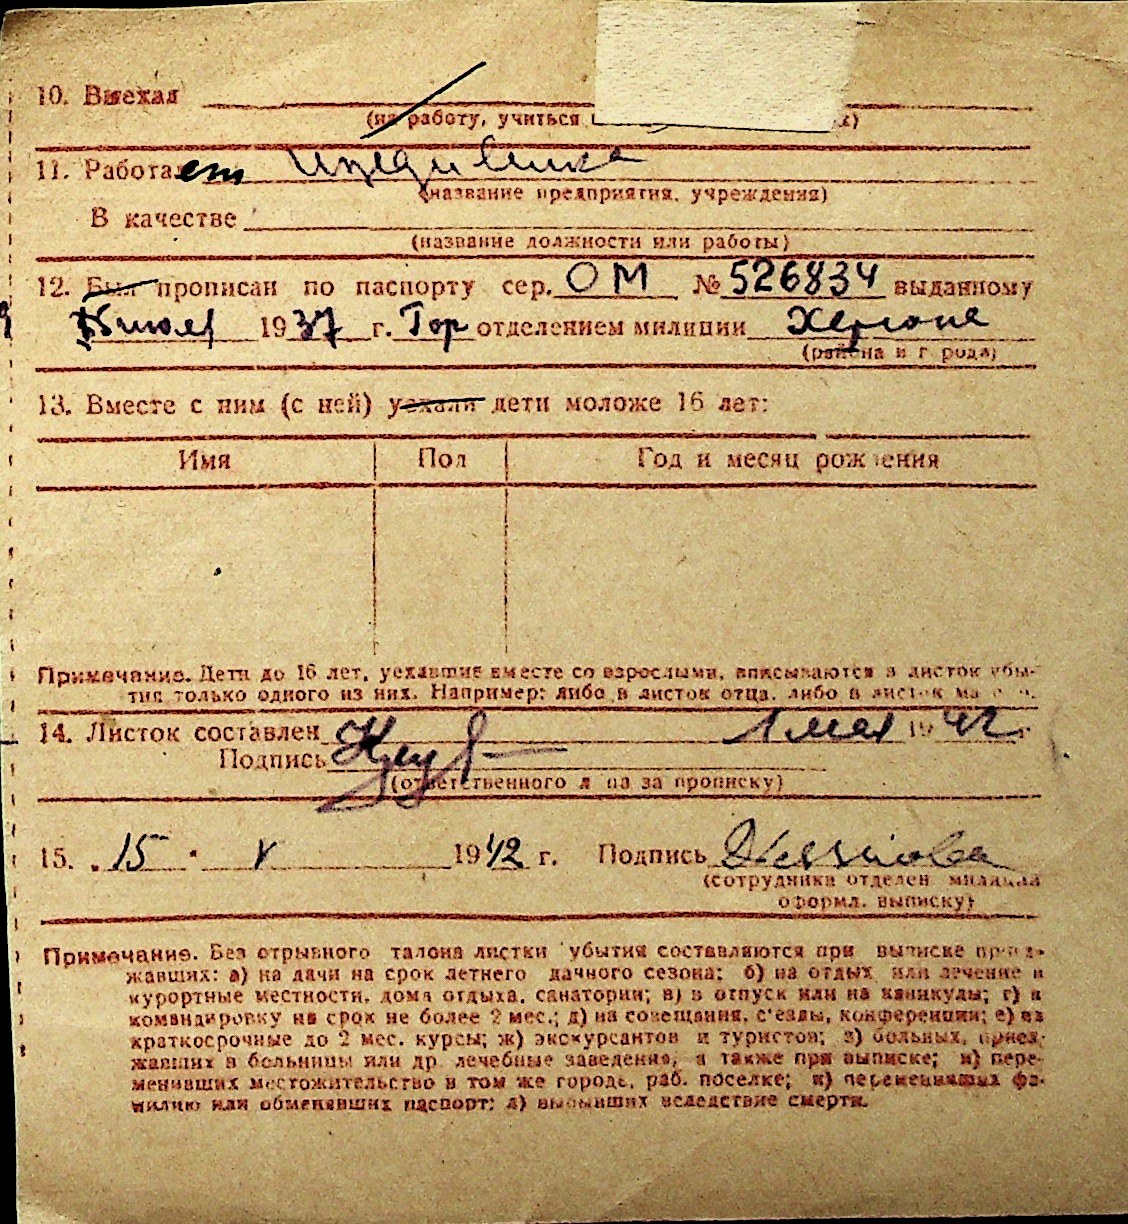 10. Выехал
(на работу, учиться
11. Работает иждивенка
(название предприятия, учреждения)
В качестве
(название должности или работы)
12. Был прописан по паспорту сер. ОМ № 526834 выданному
июля 1937 г. Гор отделением милиции Херсона
(района и города)
13. Вместе с ним (с ней) уехали дети моложе 16 лет:
Имя Пол Год и месяц рождения
Примечание. Дети до 16 лет, уехавшие вместе со взрослыми, вписываются в листок убы-
тия только одного из них. Например: либо в листок отца, либо в листок
14. Листок составлен 1 мая 1942 г.
Подпись
(ответственного лица за прописку)
15. 15 V 1942 г. Подпись
(сотрудника отделен. милиции
оформл. выписку)
Примечание. Без отрывного талона листки убытия составляются при выписке приез-
жавших: а) на дачи на срок летнего дачного сезона; б) на отдых или лечение в
курортные местности, дома отдыха, санатории; в) в отпуск или на каникулы; г) в
командировку на срок не более 2 мес.; д) на совещания, с'езды, конференции; е) на
краткосрочные до 2 мес. курсы; ж) экскурсантов и туристов; з) больных, приез-
жавших в больницы или др. лечебные заведения, а также при выписке; и) пере-
менивших местожительство в том же городе, раб. поселке; к) переменивших фа-
милию или обменявших паспорт; л) выбывших вследствие смерти.